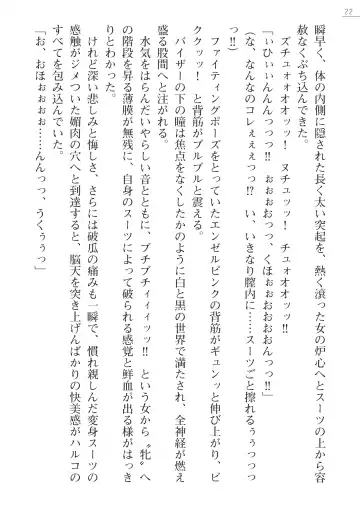 22
瞬早く、体の内側に隠された長く太い突起を、熱く滾った女の炉心へとスーツの上から容
赦なくぶち込んできた。
ズチュォオオオッッ！ ヌチュッッ！ チュォオオオッッ‼
「ぃひぃぃんんんっっっ‼ ぉぉぉおっっ、くほぉぉおおおおおんっっ‼
（な、なんなのコレぇぇぇっっ⁉ い、いきなり膣内に……スーツごと擦れるぅぅっっっ
っ‼）
ファイティングポーズをとっていたエンゼルピンクの背筋がギュンッと伸び上がり、ビ
ククッッ！ と背筋がブルブルと震える。
バイザーの下の瞳は焦点をなくしたかのように白と黒の世界で満たされ、全神経が燃え
盛る股間へと注がれる。
水気をはらんだいやらしい音とともに、ブチブチィィィッッ‼ という女から〝牝〟へ
の階段を昇る薄膜が無残に、自身のスーツによって破られる感覚と鮮血が出る様がはっき
りとわかった。
けれど深い悲しみと悔しさ、さらには破瓜の痛みも一瞬で、慣れ親しんだ変身スーツの
感触がジメついた媚肉の穴へと到達すると、脳天を突き上げんばかりの快美感がハルコの
すべてを包み込んでいた。
「お、おほぉぉぉぉ……んんっっ、うくぅぅっっ」